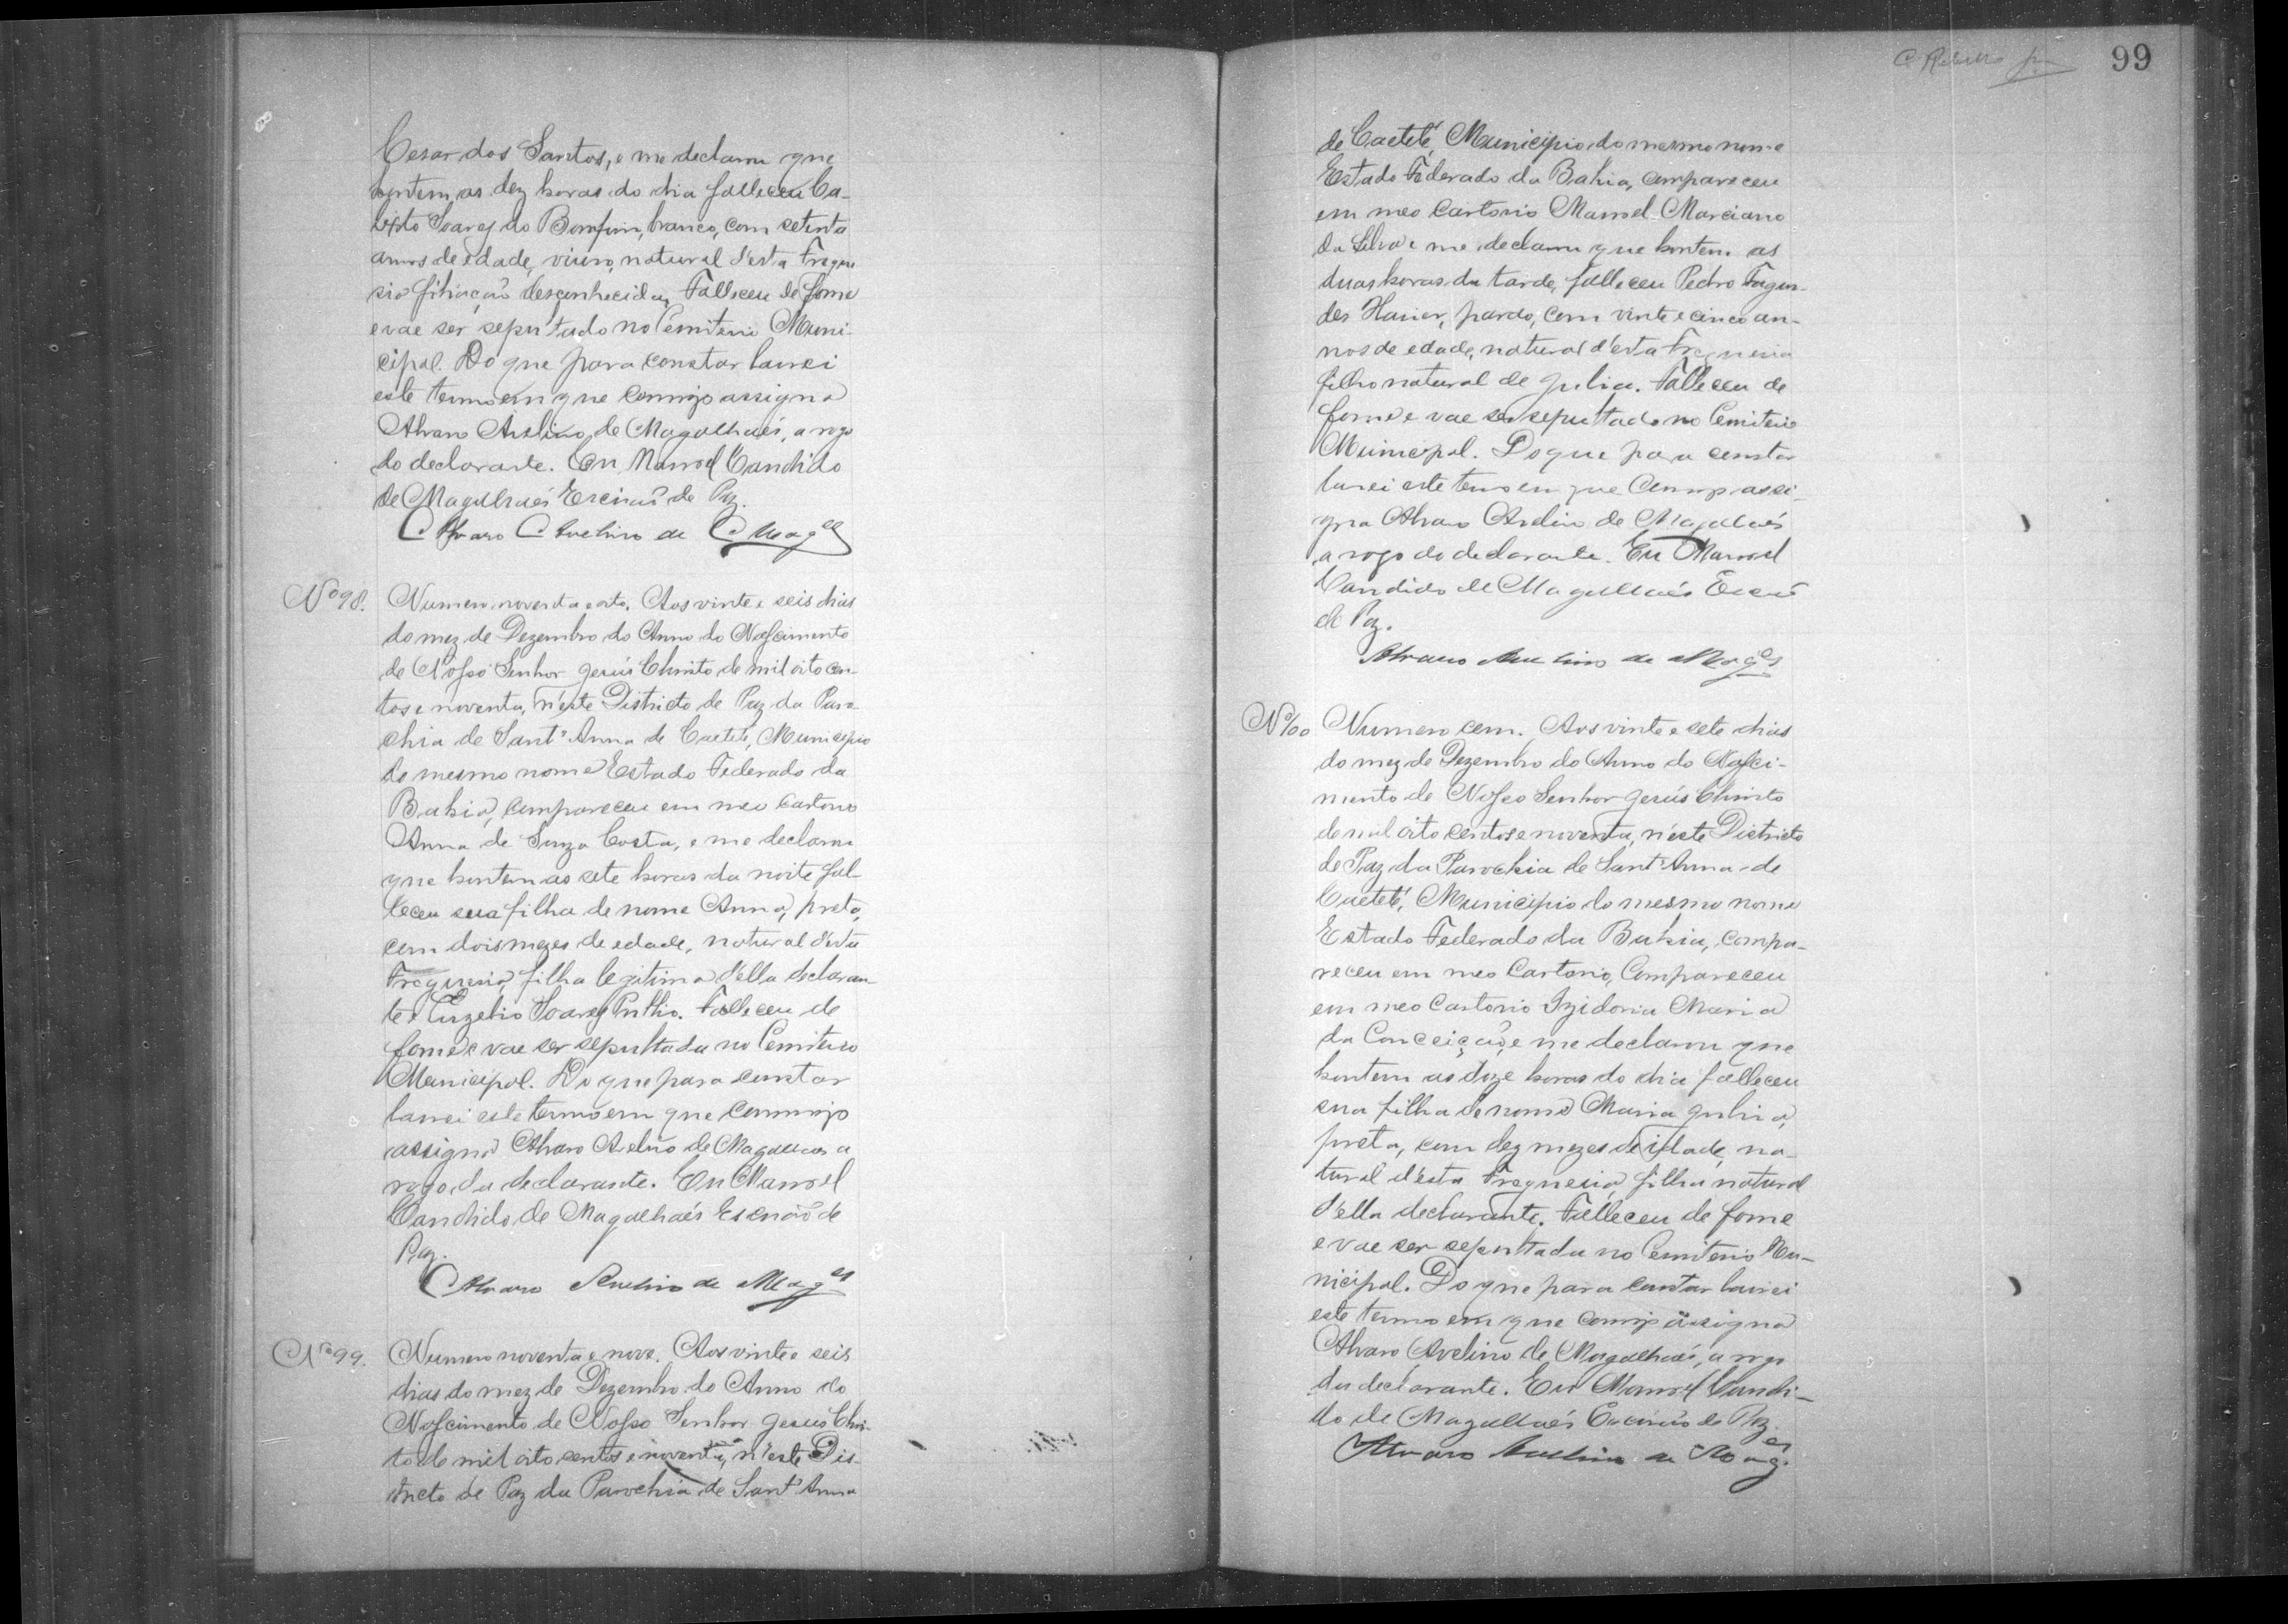 Cesar dos Santos, e me declarou que
hontem as dez horas do dia falleceu Ca-
lixto Soares do Bomfim, branco, com setenta
annos de edade, viuvo, natural d'esta Fregue
sia filiação desconhecida, Falleceu de fome
e vae ser sepultado no Cemiterio Muni-
cipal. Do que para constar lavrei
este termo em que commigo assigna
Alvaro Avelino de Magalhães, a rogo
do declarante. Eu Manoel Candido
de Magalhães Escrivão de Paz.
Alvaro Avelino de Mag.es
Nº 98. Numero noventa e oito. Aos vinte e seis dias
do mez de Dezembro do Anno do Nascimento
de Nosso Senhor Jesús Christo de mil oito cen-
tos e noventa, n'este Districto de Paz da Paro-
chia de Sant'Anna de Caeteté, Municipio
do mesmo nome Estado Federado da
Bahia, compareceu em meo Cartorio
Anna de Souza Costa, e me declarou
que hontem as sete horas da noite fal-
leceu sua filha de nome Anna, preta,
com dois mezes de edade, natural d'esta
Freguesia, filha legitima d'ella declaran-
te e Euzebio Soares. Falleceu de
fome e vae ser sepultada no Cemiterio
Municipal. Do que para constar
lavrei este termo em que commigo
assigna Alvaro Avelino de Magalhães a
rogo da declarante. Eu Manoel
Candido de Magalhães Escrivão de
Paz.
Alvaro Avelino de Mag.es
Nº 99. Numero noventa e nove. Aos vinte e seis
dias do mez de Dezembro do Anno do
Nascimento de Nosso Senhor Jesus Chris-
to de mil oito centos e noventa, n'este Dis-
tricto de Paz da Parochia de Sant'Anna
99
de Caeteté, Municipio do mesmo nome
Estado Federado da Bahia, compareceu
em meo Cartorio Manoel Marciano
da Silva e me declarou que hontem as
duas horas da tarde, falleceu Pedro Fagun-
des, pardo, com vinte e cinco an-
nos de edade, natural d'esta Freguesia
filho natural de Julia. Falleceu de
fome e vae ser sepultado no Cemiterio
Municipal. Do que para constar
lavrei este termo em que commigo assi-
gna Alvaro Avelino de Magalhães
a rogo do declarante. Eu Manoel
Candido de Magalhães Escrivão
de Paz.
Alvaro Avelino de Mag.es
Nº 100 Numero cem. Aos vinte e sete dias
do mez de Dezembro do Anno do Nasci-
mento de Nosso Senhor Jesús Christo
de mil oito centos e noventa, n'este Districto
de Paz da Parochia de Sant'Anna de
Caeteté, Municipio do mesmo nome
Estado Federado da Bahia, compa-
receu em meo Cartorio, Compareceu
em meo Cartorio Izidoria Maria
da Conceição, e me declarou que
hontem as doze horas do dia falleceu
sua filha de nome Maria Julia,
preta, com dez mezes de idade, na-
tural d'esta Freguesia, filha natural
d'ella declarante. Falleceu de fome
e vae ser sepultada no Cemiterio Mu-
nicipal. Do que para constar lavrei
este termo em que commigo assigna
Alvaro Avelino de Magalhães, a rogo
da declarante. Eu Manoel Candi-
do de Magalhães Escrivão de Paz.
Alvaro Avelino de Mag.es